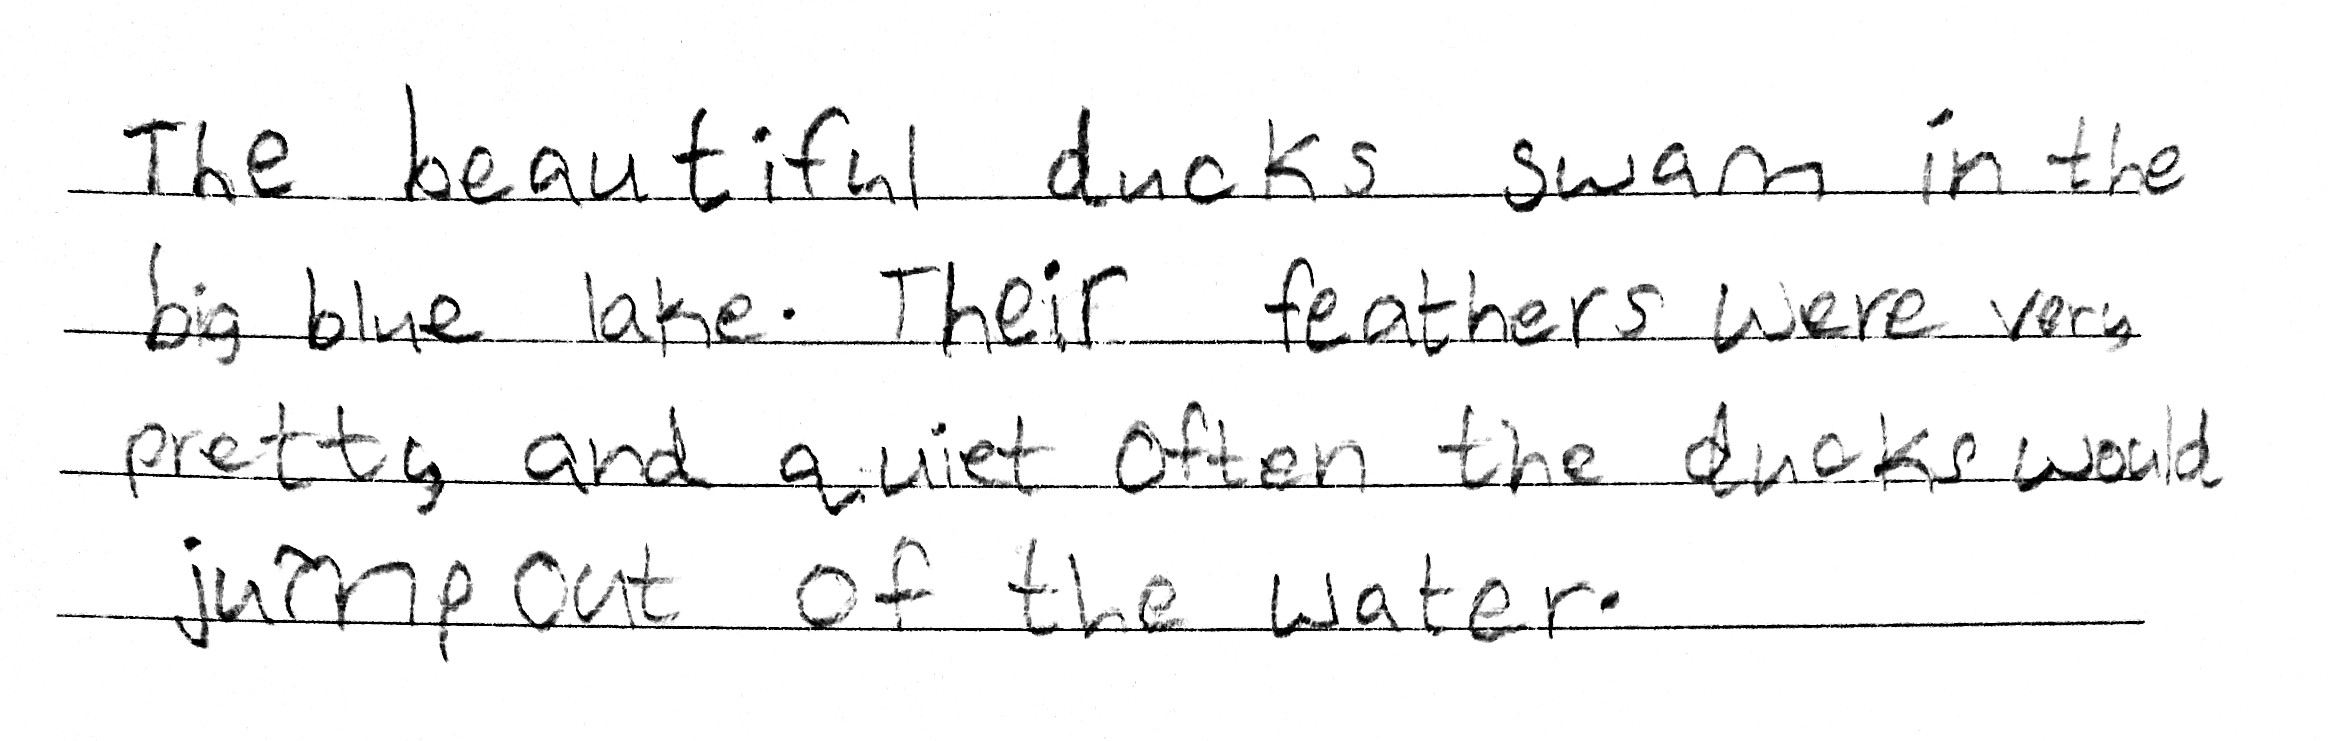 The beautiful ducks swam in the
big blue lake. Their feathers were very
pretty and quiet Often the ducks would
jump out of the water.